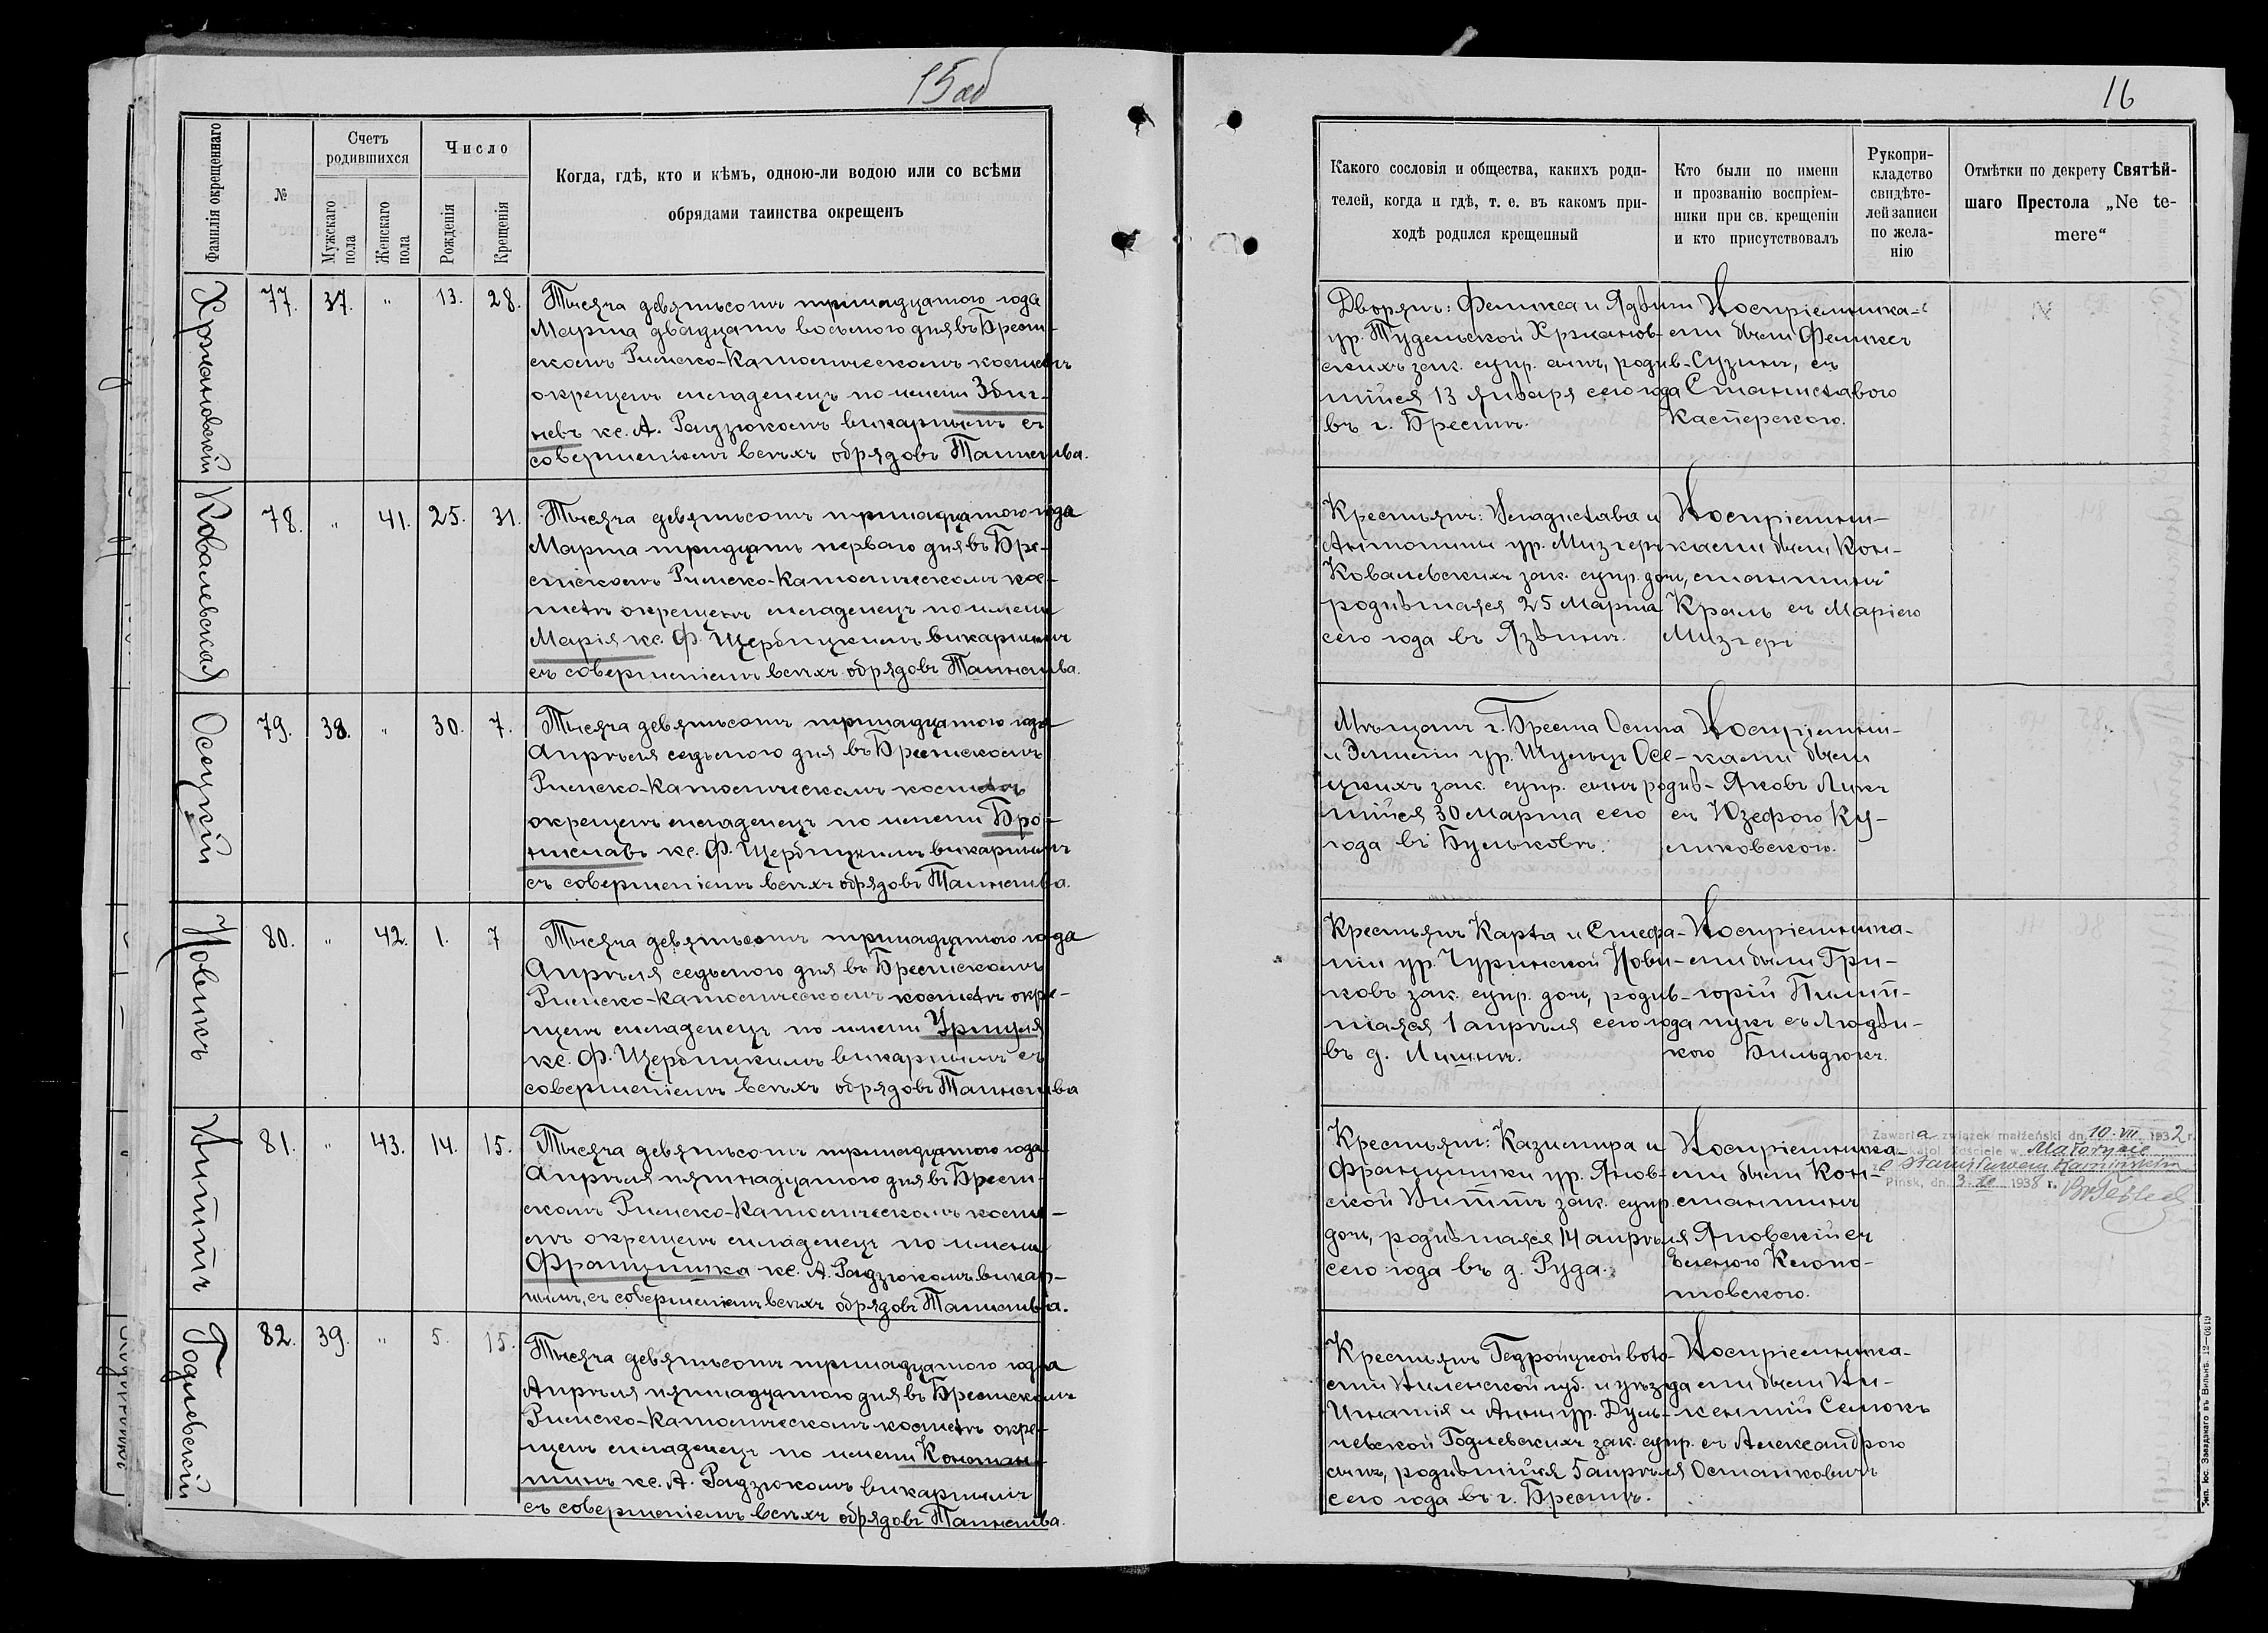 15 об
Фамилія окрещеннаго
№
Счетъ родившихся
Мужскаго пола
Женскаго пола
Число
Рожденія
Крещенія
Когда, гдѣ, кто и кѣмъ, одною-ли водою или со всѣми
обрядами таинства окрещенъ
Хржановскій
77. 37. " 13. 28.
Тысяча девятьсотъ тринадцатого года
Марта двадцать восьмого дня въ Брест-
скомъ Римско-Католическомъ костелѣ
окрещенъ младенецъ по имени Збиг-
невъ кс. А. Радзюкомъ викарнымъ съ
совершеніемъ всѣхъ обрядовъ Таинства.
Ковалевская
78. " 41. 25. 31.
Тысяча девятьсотъ тринадцатого года
Марта тридцать перваго дня въ Бре-
стскомъ Римско-Католическомъ кос-
телѣ окрещенъ младенецъ по имени
Марія кс. Ф. Щербицкимъ викарнымъ
съ совершеніемъ всѣхъ обрядовъ Таинства.
Осецкій
79. 38. " 30. 7.
Тысяча девятьсотъ тринадцатого года
Апрѣля седьмого дня въ Брестскомъ
Римско-Католическомъ костелѣ
окрещенъ младенецъ по имени Бро-
ниславъ кс. Ф. Щербицкимъ викарнымъ
съ совершеніемъ всѣхъ обрядовъ Таинства.
Новикъ
80. " 42. 1. 7
Тысяча девятьсотъ тринадцатого года
Апрѣля седьмого дня въ Брестскомъ
Римско-Католическомъ костелѣ окре-
щенъ младенецъ по имени Уршуля
кс. Ф. Щербицкимъ викарнымъ съ
совершеніемъ всѣхъ обрядовъ Таинства
Виттъ
81. " 43. 14. 15.
Тысяча девятьсотъ тринадцатого года
Апрѣля пятнадцатого дня въ Брест-
скомъ Римско-Католическомъ косте-
лѣ окрещенъ младенецъ по имени
Францишка кс. А. Радзюкомъ викар-
нымъ, съ совершеніемъ всѣхъ обрядовъ Таинства.
Годлевскій
82. 39. " 5. 15.
Тысяча девятьсотъ тринадцатого года
Апрѣля пятнадцатого дня въ Брестскомъ
Римско-Католическомъ костелѣ окре-
щенъ младенецъ по имени Констан-
тинъ кс. А. Радзюкомъ викарнымъ
съ совершеніемъ всѣхъ обрядовъ Таинства.
16
Какого сословія и общества, какихъ роди-
телей, когда и гдѣ, т. е. въ какомъ при-
ходѣ родился крещенный
Кто были по имени
и прозванію воспріем-
ники при св. крещеніи
и кто присутствовалъ
Рукопри-
кладство
свидѣте-
лей записи
по жела-
нію
Отмѣтки по декрету Святѣй-
шаго Престола „Ne te-
mere“
Дворянъ: Феликса и Ядвиги
ур. Тудельской Хржанов-
скихъ зак. супр. сынъ, родив-
шійся 13 Января сего года
въ г. Брестѣ.
Воспріемника-
ми были Феликсъ
Сузинъ, съ
Станиславою
Касперскою.
Крестьянъ: Владислава и
Антонины ур. Мизгеръ
Ковалевскихъ зак. супр. дочь,
родившаяся 25 Марта
сего года въ Язвинѣ.
Воспріемни-
ками были Кон-
стантинъ
Краль съ Маріею
Мизгеръ
Мѣщанъ г. Бреста Осипа
и Эмиліи ур. Шульцъ Осе-
цкихъ зак. супр. сынъ родив-
шійся 30 марта сего
года въ Бульковѣ.
Воспріемни-
ками были
Яковъ Ликъ
съ Юзефою Ку-
ликовскою.
Крестьянъ Карла и Стефа-
ніи ур. Чуринской Нови-
ковъ зак. супр. дочь, родив-
шаяся 1 апрѣля сего года
въ д. Лишнѣ.
Воспріемника-
ми были Гри-
горій Пилип-
чукъ съ Людви-
кою Бильдюкъ.
Крестьянъ: Казимира и
Францишки ур. Янов-
ской Виттъ зак. супр.
дочь, родившаяся 14 апрѣля
сего года въ д. Руда.
Воспріемника-
ми были Кон-
стантинъ
Яновскій съ
Еленою Клоно-
товскою.
Zawarła związek małżeński dn. 10. VII 1932 r.
kościele w Małorycie
z Stanisławem Kamińskim
Pińsk, dn. 3. XI 1938 r.
Крестьянъ Гедройцкой воло-
сти Виленской губ. и уѣзда
Игнатія и Анны ур. Дуль-
невской Годлевскихъ зак. супр.
сынъ, родившійся 5 апрѣля
сего года въ г. Брестѣ.
Воспріемника-
ми были Ви-
кентій Семюкъ
съ Александрою
Останковичъ
Тип. Іос. Завадзкаго въ Вильнѣ. 12—0619